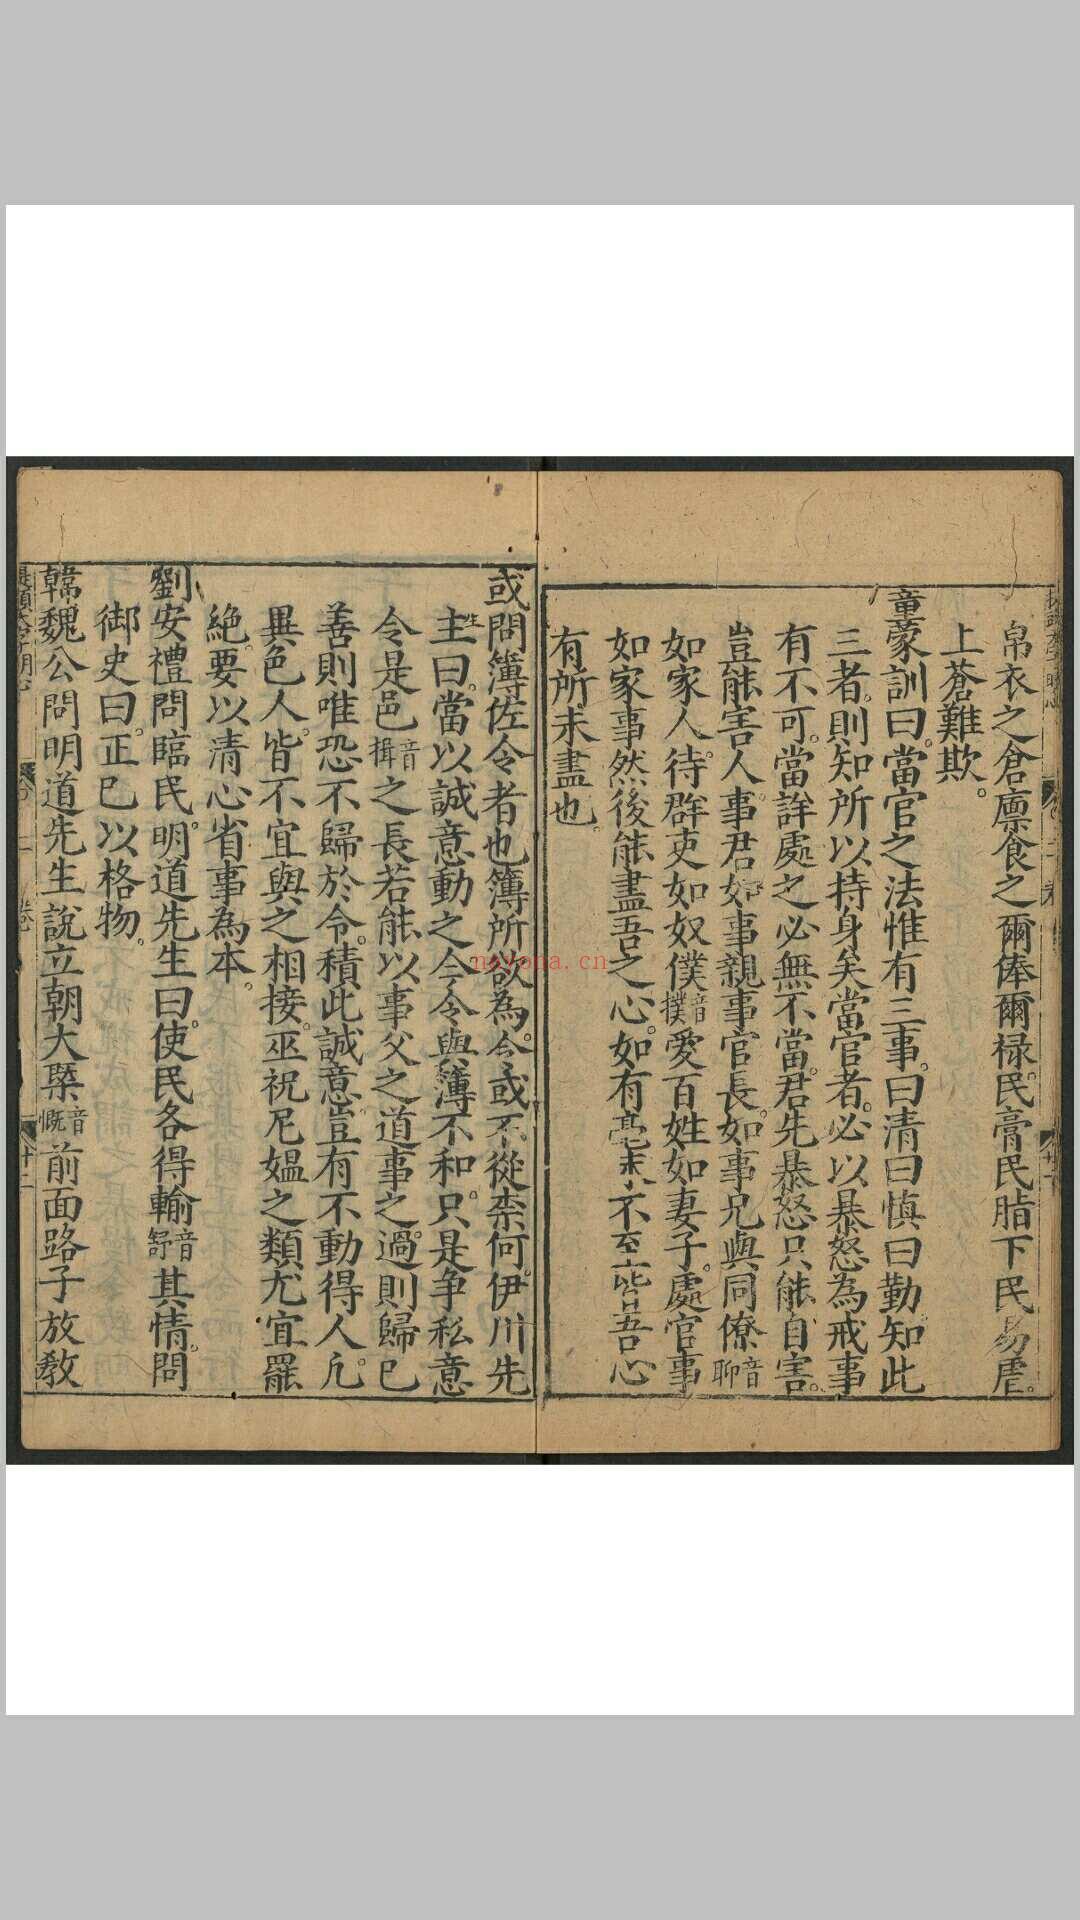 帛衣之倉廪食之爾俸爾禄民膏民脂下民易虐
上蒼難欺
童蒙訓曰當官之法惟有三事曰清曰慎曰勤知此
三者則知所以持身矣當官者必以暴怒為戒事
有不可當詳處之必無不當君先暴怒只能自害
豈能害人事君如事親事官長如事兄與同僚音聊
如家人待群吏如奴僕音撲愛百姓如妻子處官事
如家事然後能盡吾之心如有毫末不至皆吾心
有所未盡也
或問簿佐令者也簿所欲為令或不從柰何伊川先
生曰當以誠意動之今令與簿不和只是争私意
令是邑音揖之長若能以事父之道事之過則歸已
善則唯恐不歸於令積此誠意豈有不動得人凢
異色人皆不宜與之相接巫祝尼媼之類尤宜罷
絶要以清心省事為本
劉安禮問臨民明道先生曰使民各得輸音舒其情問
御史曰正已以格物
韓魏公問明道先生說立朝大槩音慨前面路子放教
nayona.cn